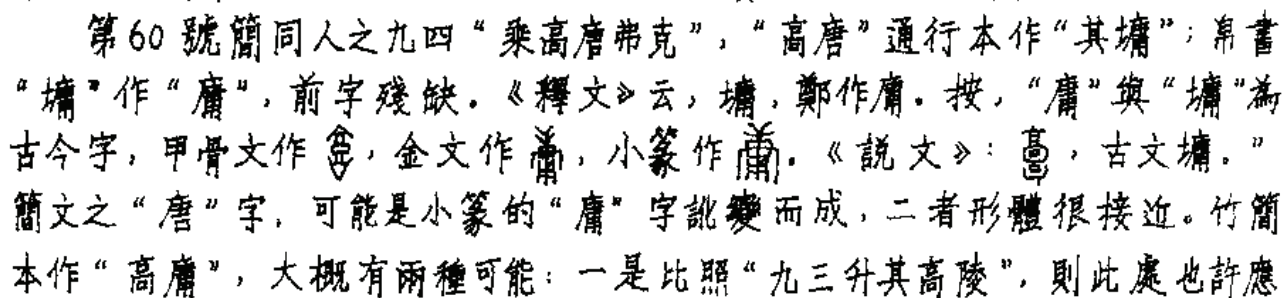 第60號簡同人之九四“乘高唐弗克”，“高唐”通行本作“其墉”；帛書
“墉”作“庸”，前字殘缺。《釋文》云，墉，鄭作庸。按，“庸”與“墉”爲
古今字，甲骨文作，金文作，小篆作。《説文》：，古文墉。”
簡文之“唐”字，可能是小篆的“庸”字訛變而成，二者形體很接近。竹簡
本作“高庸”，大概有兩種可能：一是比照“九三升其高陵”，則此處也許應